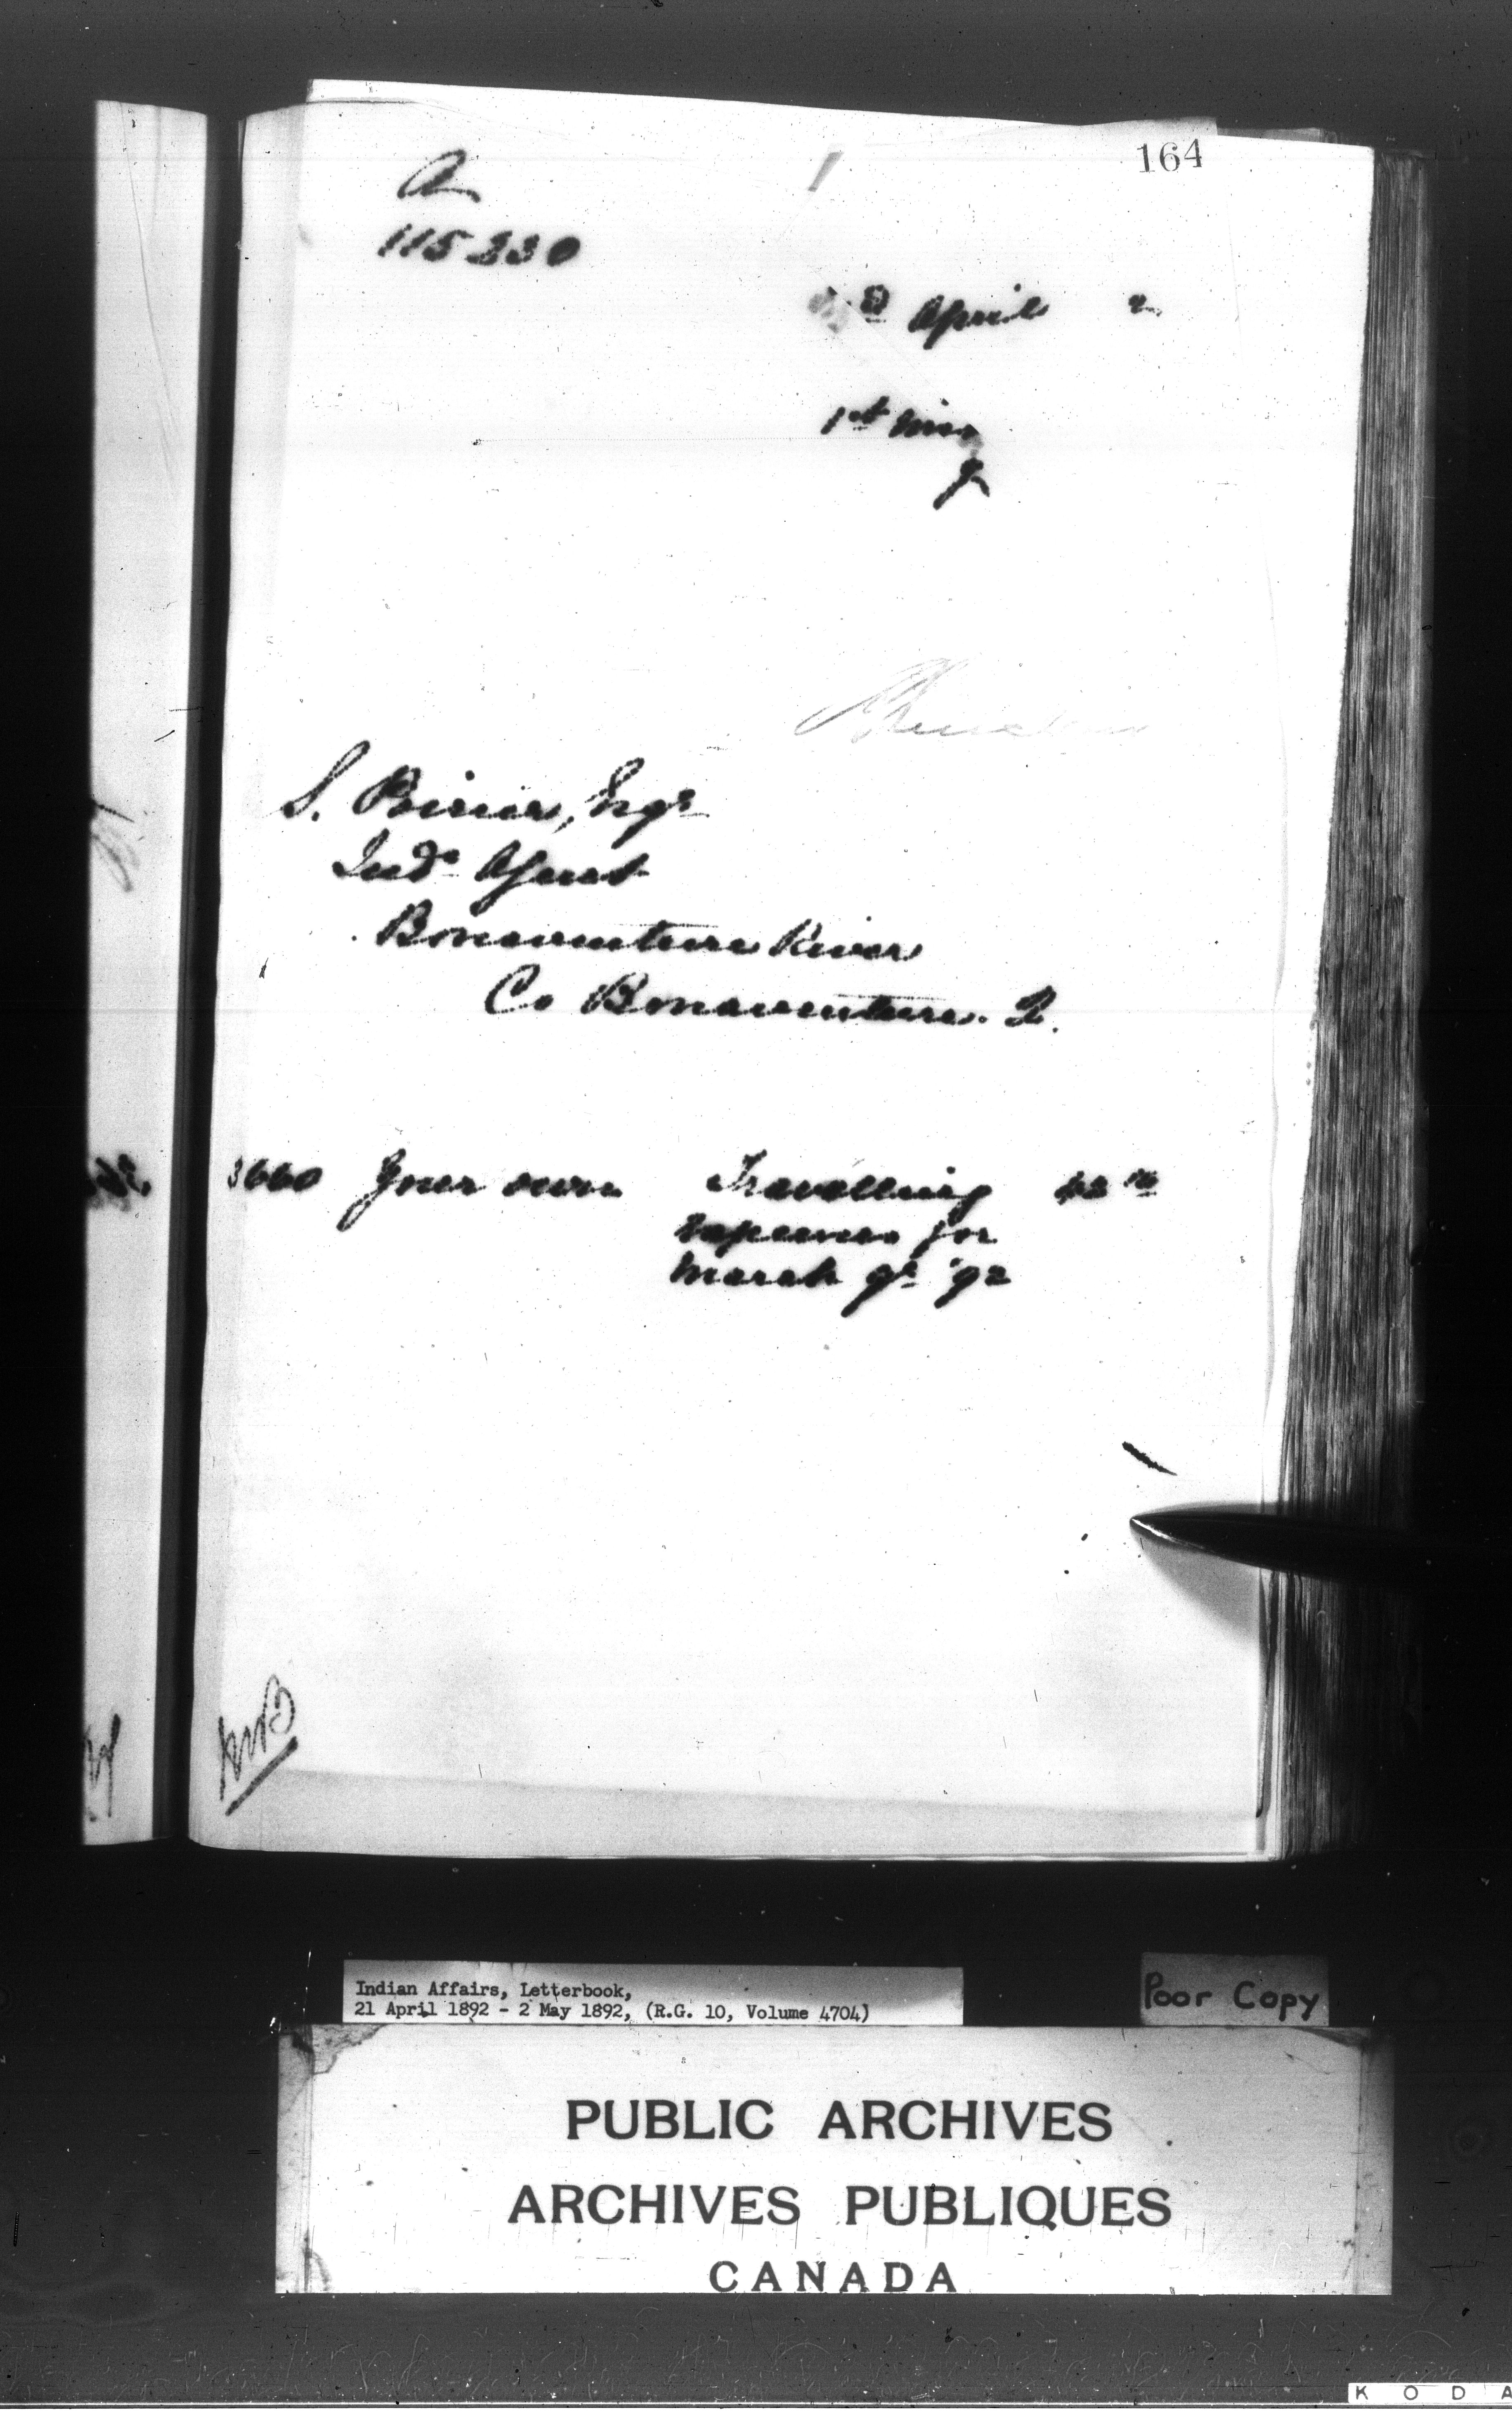 164
A
115230
April 2
1st
S. Poirier, Esqr
Indn Agent
Bonaventure River
Co Bonaventure. Q.
3660 Your own Travelling
expenses for
March qr '92
Indian Affairs, Letterbook,
21 April 1892 - 2 May 1892, (R.G. 10, Volume 4704)
Poor Copy
PUBLIC ARCHIVES
ARCHIVES PUBLIQUES
CANADA
K O D A